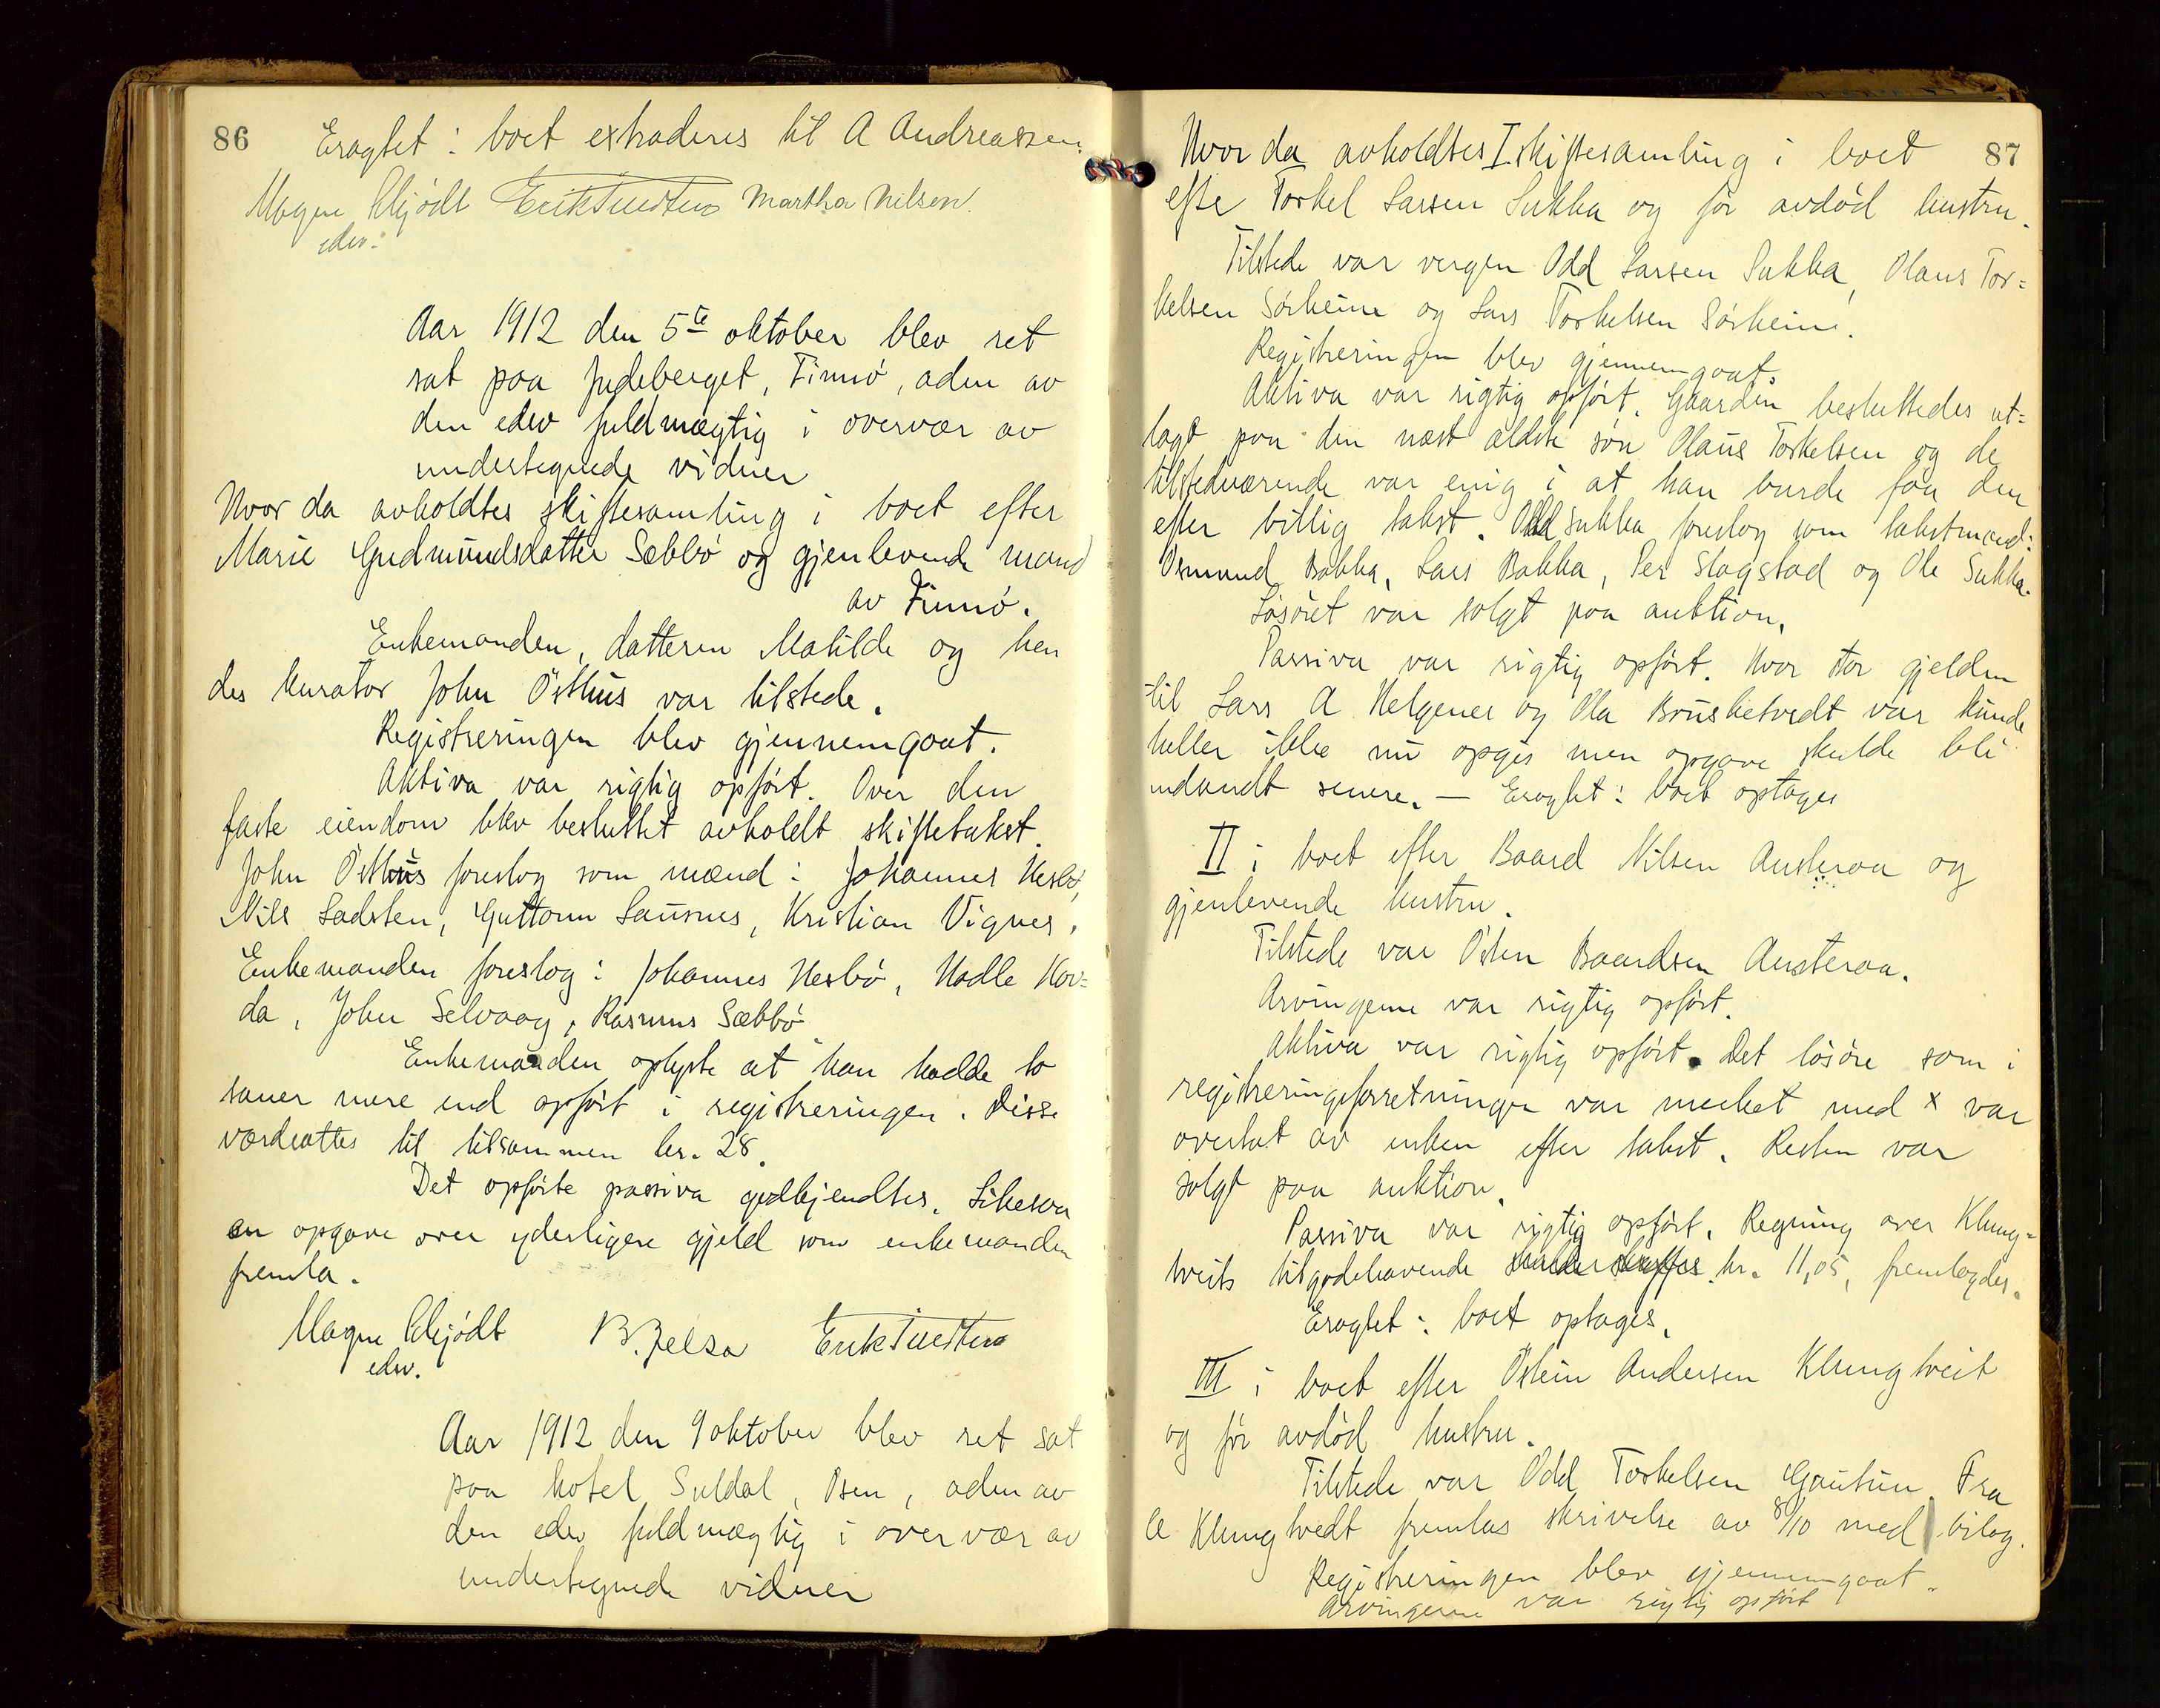 86
Eragtet: boet extraderes til A Andreassen.
Magne Schjödt Erik Tuedten Martha Nilsen.
edsv.
Aar 1912 den 5te oktober blev ret
sat paa Judeberget, Finnö, adm av
den edsv fuldmægtig i overvær av
undertegnede vidner
Hvor da avholdtes skiftesamling i boet efter
Marie Gudmundsdatter Sæbbö og gjenlevende mand
av Finnö.
Enkemanden, datteren Matilde og hen
des kurator John Östhus var tilstede.
Registreringen blev gjennemgaat.
Aktiva var rigtig opfört. Over den
faste eiendom blev besluttet avholdt skiftetakst.
John Östhus foreslog som mænd: Johannes Hesbö,
Nils Ladsten, Guttorm Lausnes, Kristian Vignes.
Enkemanden foreslog: Johannes Hesbö, Hadle Hov=
da, John Selvaag, Rasmus Sæbbö
Enkemanden oplyste at han hadde to
sauer mere end opfört i registreringen. Disse
værdsattes til tilsammen kr. 28.
Det opförte passiva godkjendtes. Likesaa
en opgave over yderligere gjeld som enkemanden
fremla.
Magne Schjödt B. Jelsa Erik Tuedten
edsv.
Aar 1912 den 9 oktober blev ret sat
paa hotel Suldal, Osen, adm av
den edsv fuldmægtig i overvær av
undertegnede vidner
87
Hvor da avholdtes I skiftesamling i boet
efte Torkel Larsen Sukka og för avdöd hustru.
Tilstede var vergen Odd Larsen Sukka, Olaus Tor=
kelsen Sörheim og Lars Torkelsen Sörheim.
Registreringen blev gjennemgaat.
Aktiva var rigtig opfört. Gaarden besluttedes ut=
lagt paa den næst ældste sön Olaus Torkelsen og de
tilstedværende var enig i at han burde faa den
efter billig takst. Odd Sukka foreslog som takstmænd:
Osmund Bakka, Lars Bakka, Per Slagstad og Ole Sukka.
Lösöret var solgt paa auktion.
Passiva var rigtig opfört. Hvor stor gjelden
til Lars A Helgenes og Ola Brusketvedt var kunde
heller ikke nu opgis men opgave skulde bli
indsendt senere. — Eragtet: boet optages
II i boet efter Baard Nilsen Austeraa og
gjenlevende hustru.
Tilstede var Östen Baardsen Austeraa.
Arvingerne var rigtig opfört.
Aktiva var rigtig opfört. Det lösöre som i
registreringsforretningen var merket med x var
overtat av enken efter takst. Resten var
solgt paa auktion.
Passiva var rigtig opfört. Regning over Klung=
tveits tilgodehavende kr. 11,05, fremlagdes.
Eragtet: boet optages.
III i boet efter Östein Andersen Klungtveit
og för avdöd hustru.
Tilstede var Odd Torkelsen Gautun. Fra
A Klungtvedt fremlas skrivelse av 8/10 med 1 bilag.
Registreringen blev gjennemgaat.
Arvingerne var rigtig opfört